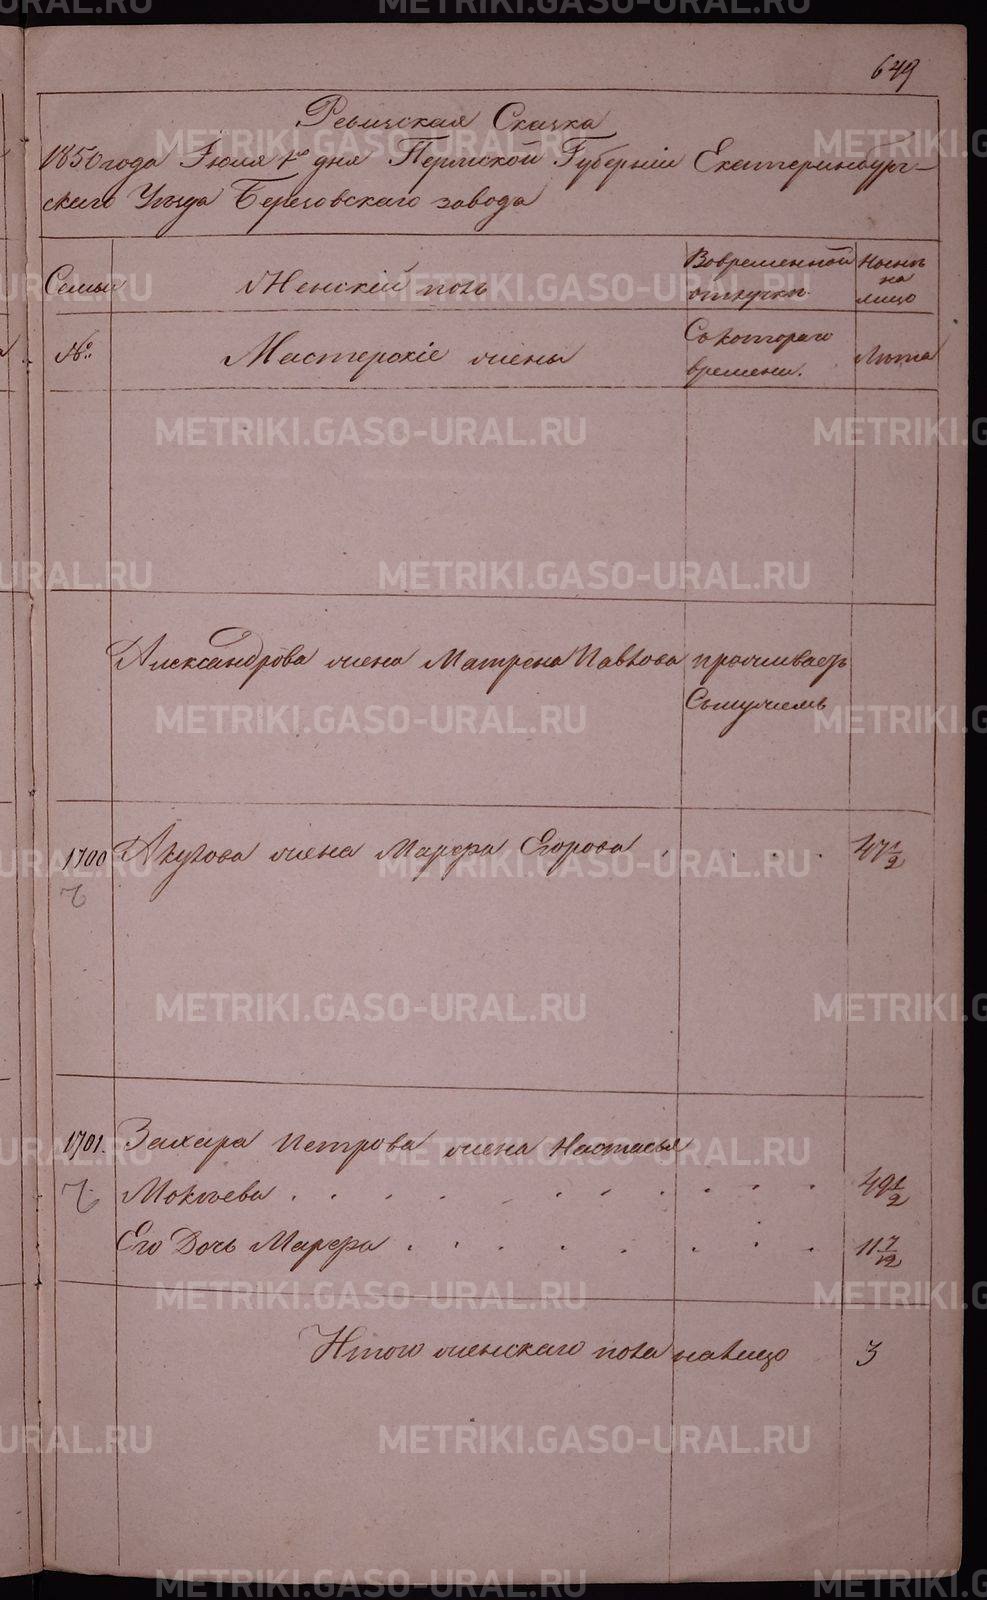 649
Ревижская Скачка
1850 года Июля 1го дня Пермской Губерніи Екатеринбург-
скаго Уѣзда Березовскаго завода
Семьи
Женскій полъ
Вовременной отлучкѣ.
Нынѣ на лицо
№.
Мастерскіе жены
Скотораго времени.
Лѣта
Александрова жена Матрена Павлова проживаетъ
Смужемъ
1700 Акулова жена Марфа Егорова . . . . 47 1/2
1701. Захара Петрова жена Настасья
Мокѣева . . . . . . . . . . 49 1/2
Его Дочь Марфа . . . . . . . . 11 7/12
Итого женскаго пола налицо 3
METRIKI.GASO-URAL.RU